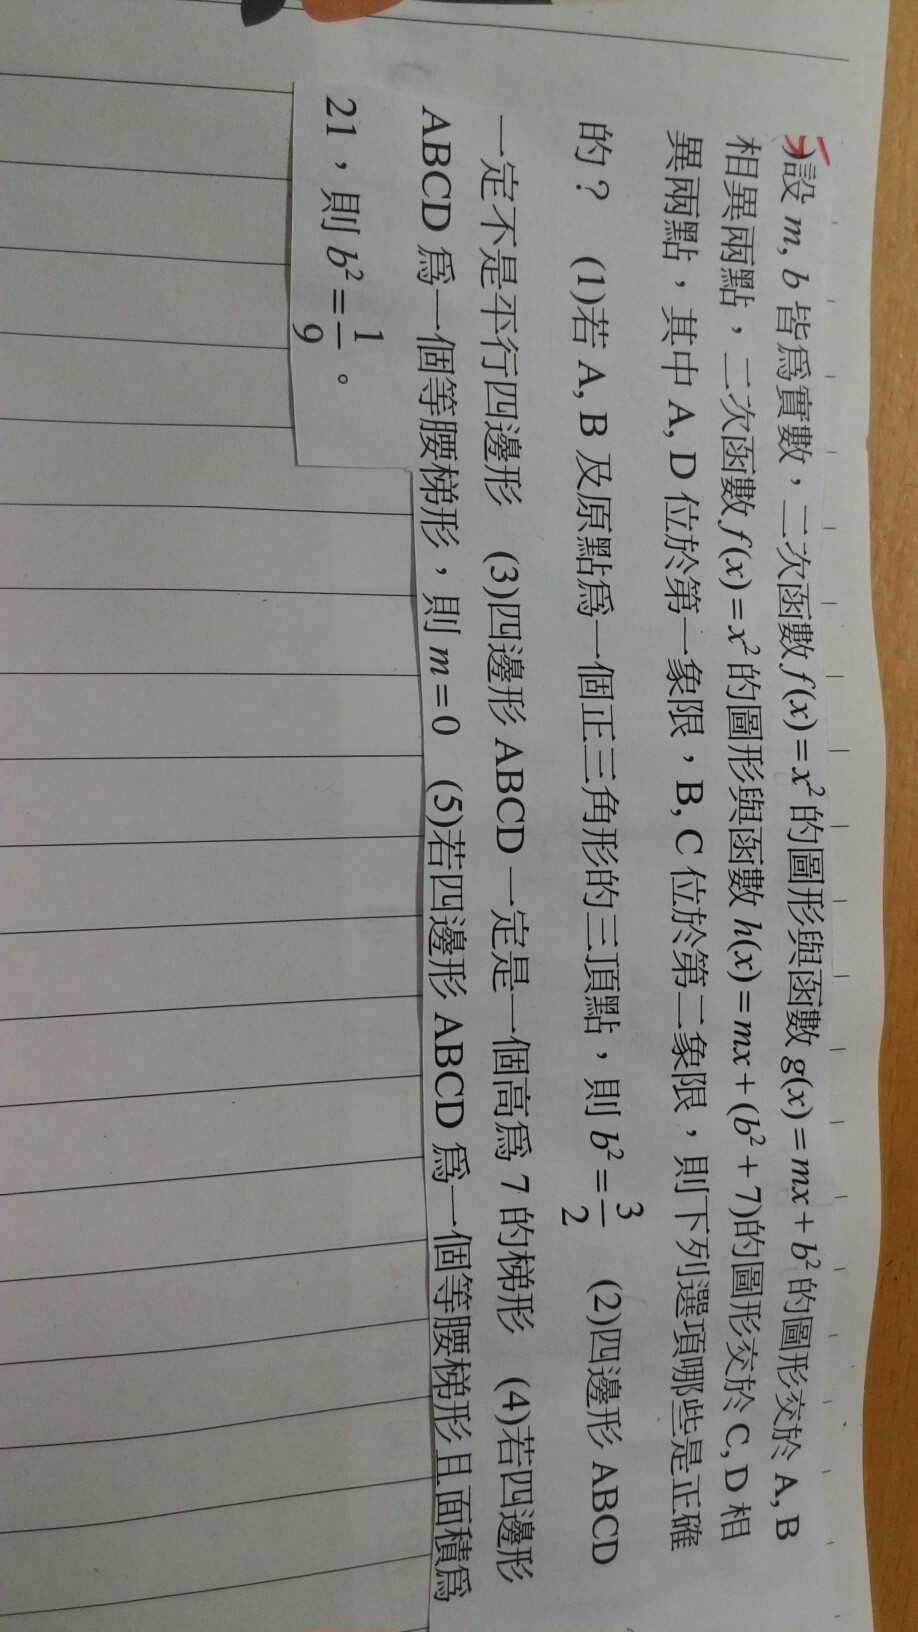 5)設 m, b 皆為實數，二次函數 f(x)=x²的圖形與函數 g(x)=mx+b²的圖形交於 A, B
相異兩點，二次函數 f(x)=x²的圖形與函數 h(x)=mx+(b²+7)的圖形交於 C, D 相
異兩點，其中 A, D 位於第一象限，B, C 位於第二象限，則下列選項哪些是正確
的？ (1)若 A, B 及原點為一個正三角形的三頂點，則 b²=3/2 (2)四邊形 ABCD
一定不是平行四邊形 (3)四邊形 ABCD 一定是一個高為 7 的梯形 (4)若四邊形
ABCD 為一個等腰梯形，則 m=0 (5)若四邊形 ABCD 為一個等腰梯形且面積為
21，則 b²=1/9。